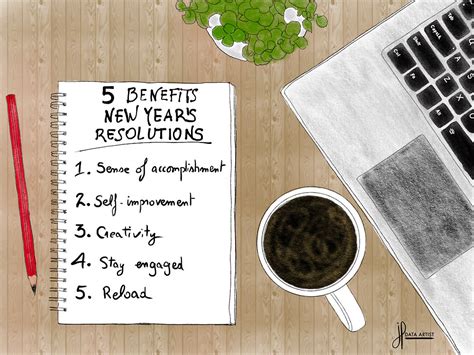 5 BENEFITS
NEW YEAR'S
RESOLUTIONS
1. Sense of accomplishment
2. Self-improvement
3. Creativity
4. Stay engaged
5. Reload
DATA ARTIST